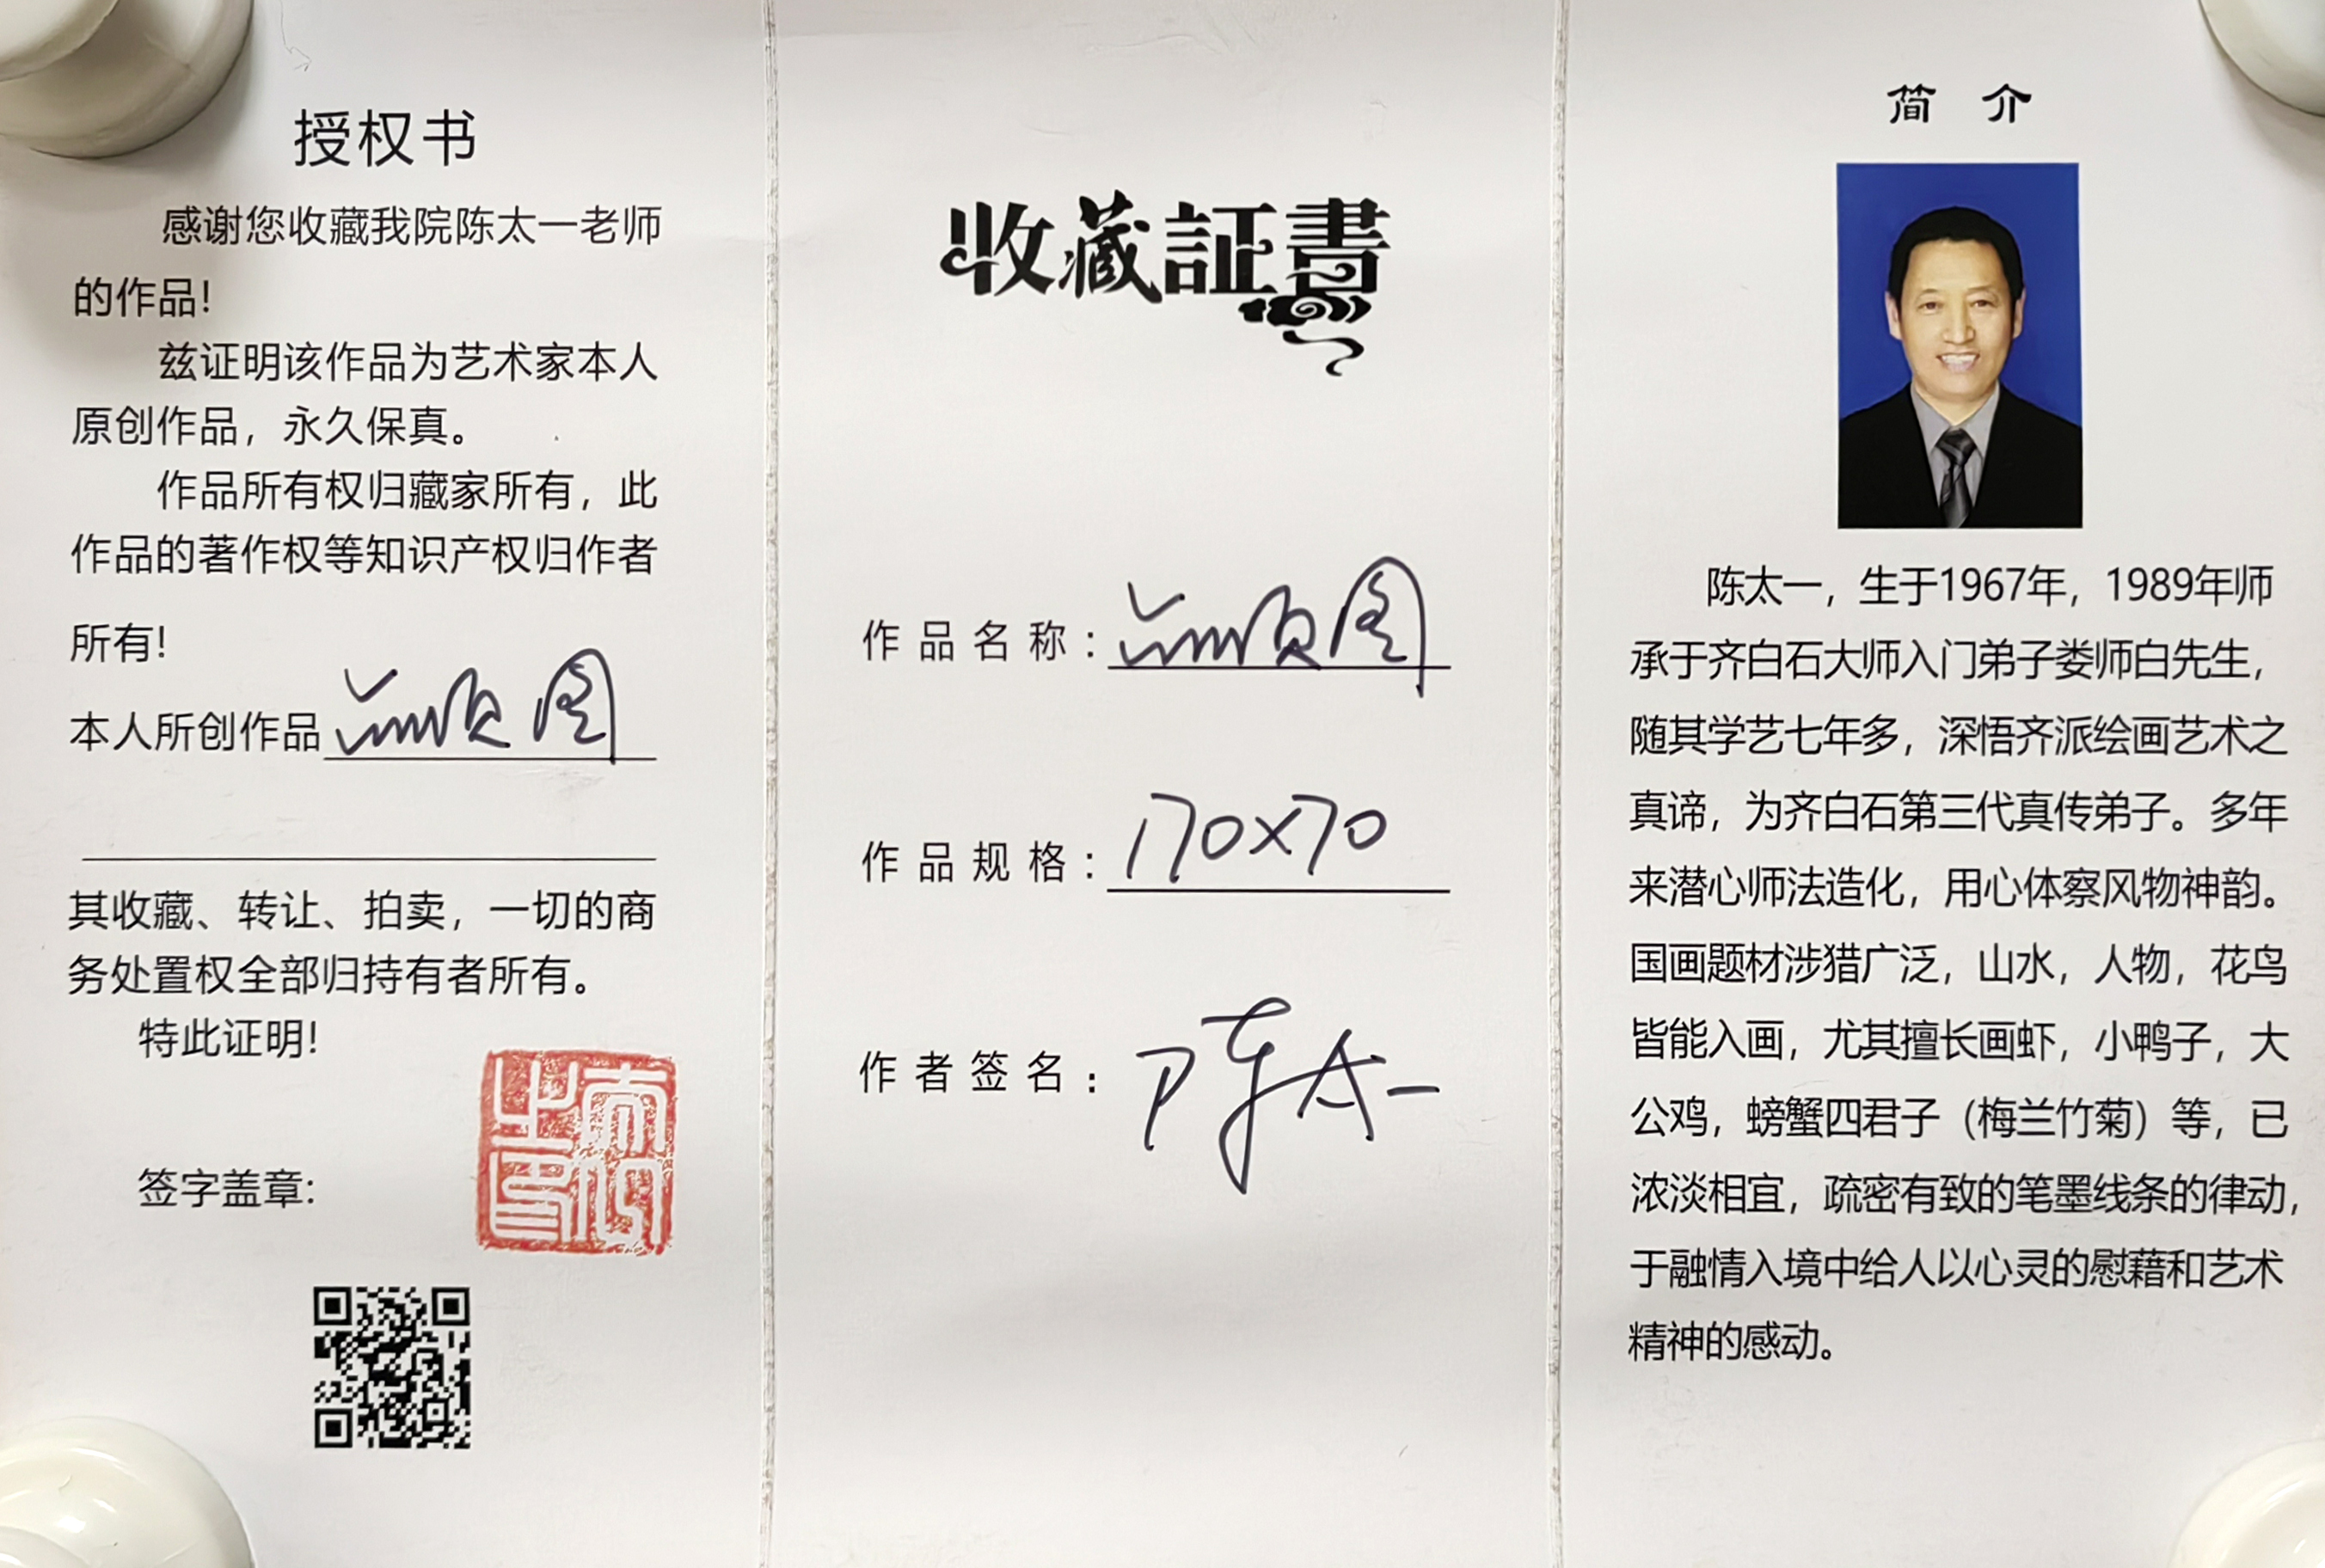 授权书
感谢您收藏我院陈太一老师
的作品!
兹证明该作品为艺术家本人
原创作品，永久保真。
作品所有权归藏家所有，此
作品的著作权等知识产权归作者
所有!
本人所创作品 顺图
其收藏、转让、拍卖，一切的商
务处置权全部归持有者所有。
特此证明!
签字盖章:
收藏証書
作品名称: 顺图
作品规格: 170×70
作者签名: 陈太一
简 介
陈太一，生于1967年，1989年师
承于齐白石大师入门弟子娄师白先生，
随其学艺七年多，深悟齐派绘画艺术之
真谛，为齐白石第三代真传弟子。多年
来潜心师法造化，用心体察风物神韵。
国画题材涉猎广泛，山水，人物，花鸟
皆能入画，尤其擅长画虾，小鸭子，大
公鸡，螃蟹四君子（梅兰竹菊）等，已
浓淡相宜，疏密有致的笔墨线条的律动，
于融情入境中给人以心灵的慰藉和艺术
精神的感动。